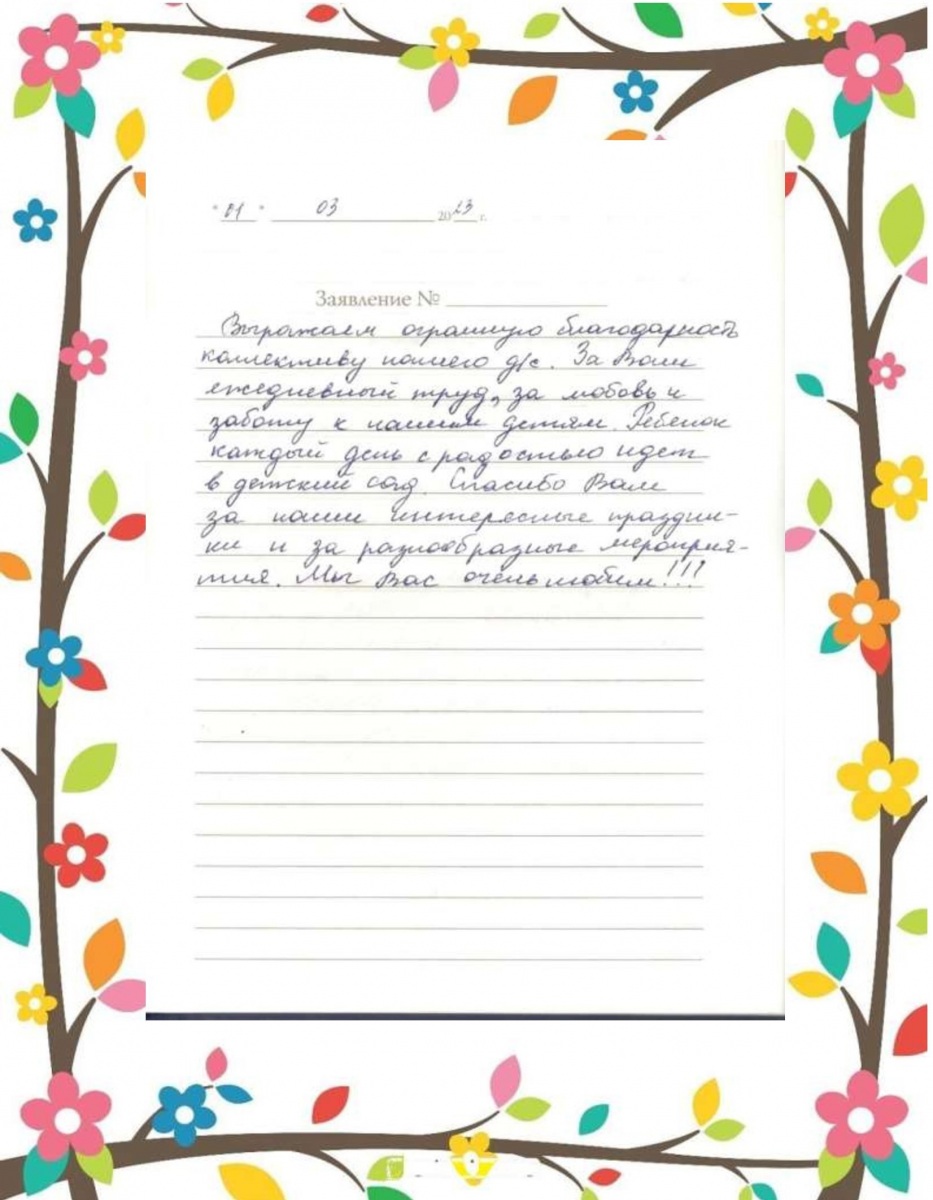 "01" 03 2023 г.
Заявление №
Выражаем огромную благодарность
коллективу нашего д/с. За Ваш
ежедневный труд, за любовь и
заботу к нашим детям. Ребенок
каждый день с радостью идет
в детский сад. Спасибо Вам
за наши интересные праздни-
ки и за разнообразные мероприя-
тия. Мы Вас очень любим!!!